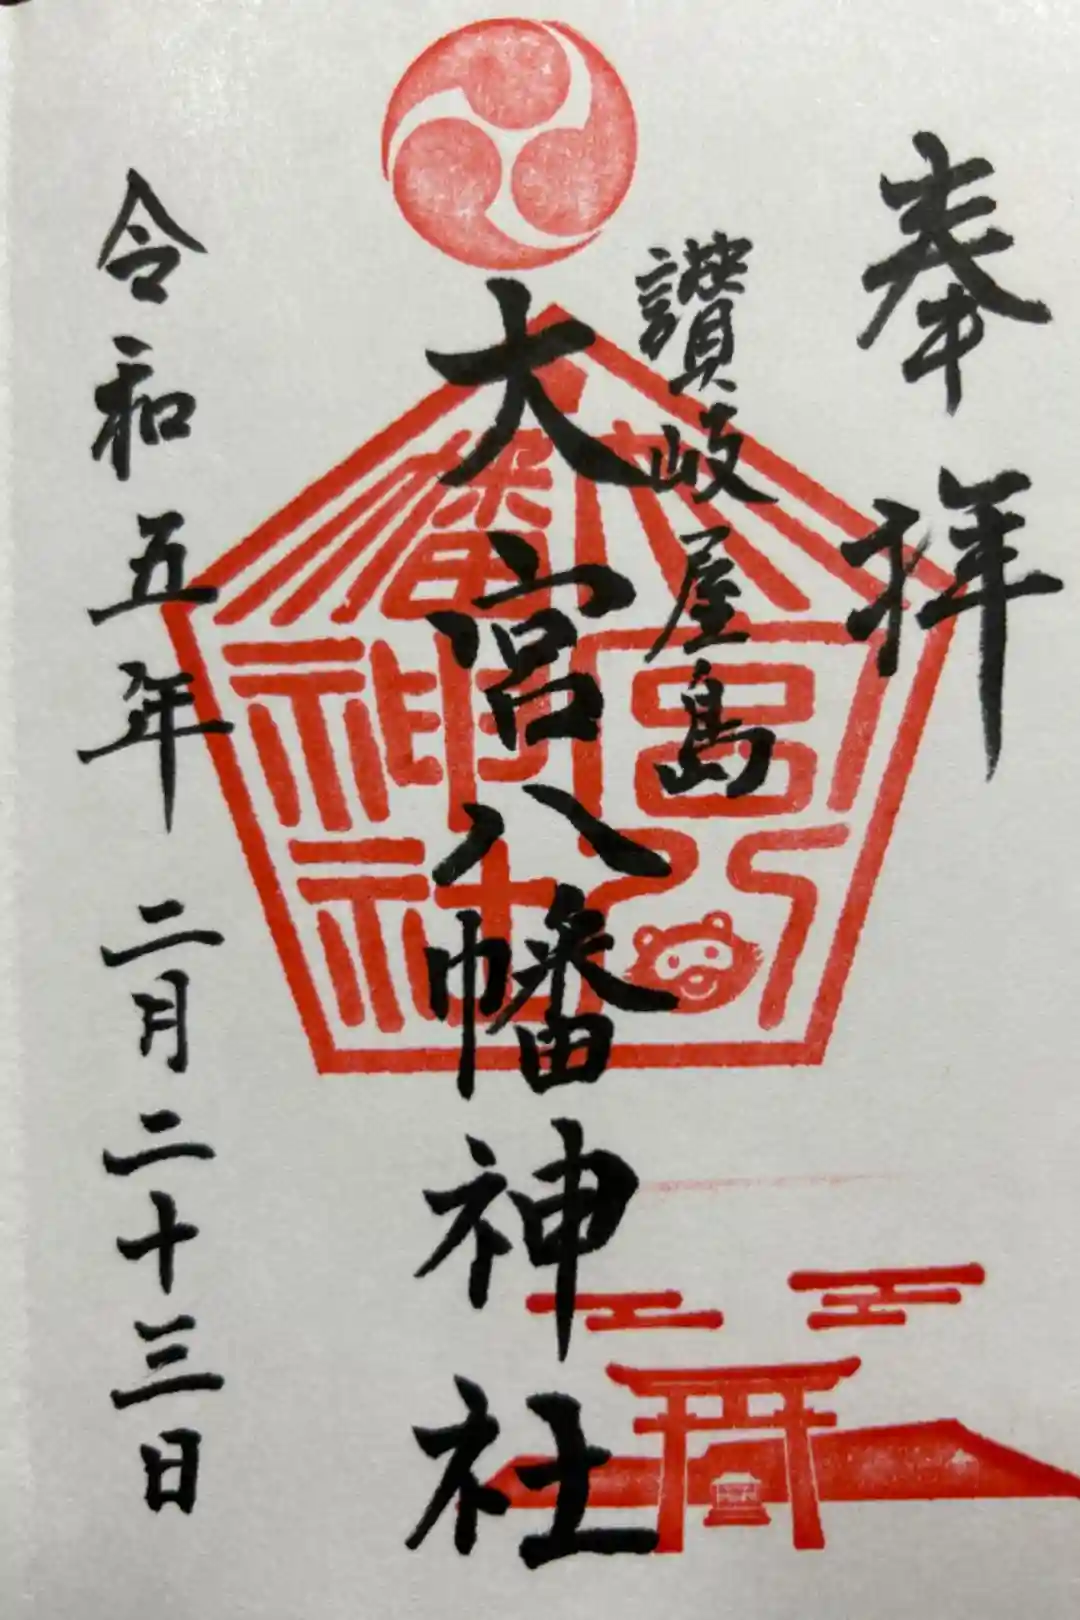 奉拝
讃岐屋島
大宮八幡神社
大宮八幡神社
令和五年 二月二十三日